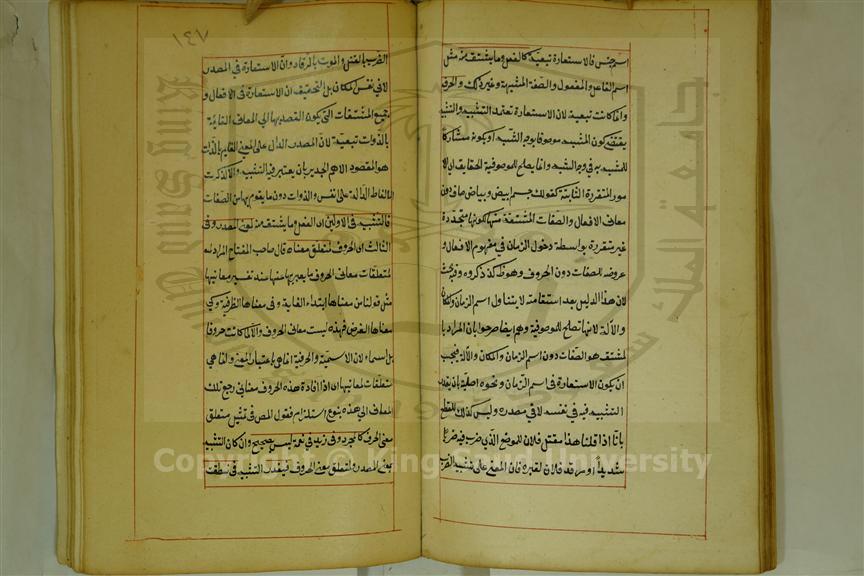 اسم جنس فالاستعارة تبعية كالفعل وما يشتق منه مثل
اسم الفاعل والمفعول والصفة المشبهة وغير ذلك والحرف
وانما كانت تبعية لان الاستعارة تعتمد التشبيه والتشبيه
يقتضي كون المشبه موصوفا بوجه الشبه او بكونه مشاركا
للمشبه به في وجه الشبه وانما يصلح للموصوفية الحقايق اي الا
مور المتقررة الثابتة كقولك جسم ابيض وبياض صاف دون
معاني الافعال والصفات المشتقة منها لكونها متجددة
غير متقررة بواسطة دخول الزمان في مفهوم الافعال و
عروضه للصفات دون الحروف وهو ظ كذا ذكروه وفيه بحث
لان هذا الدليل بعد استقامته لا يتناول اسم الزمان والمكان
والآلة لانها تصلح للموصوفية وهم ايضا صرحوا بان المراد با
لمشتق هو الصفات دون اسم الزمان والمكان والآلة فيجب
ان يكون الاستعارة في اسم الزمان ونحوه اصلية بان يقدر
التشبيه فيه في نفسه لا في مصدره وليس كذلك للقطع
بانا اذا قلنا هذا مقتل فلان للموضع الذي ضرب فيه ضربا
شديدا او مرقد فلان لقبره فان المعنى على تشبيه الضرب
١٤٧
الضرب بالقتل والموت بالرقاد وان الاستعارة في المصدر
لا في نفس المكان بل التحقيق ان الاستعارة في الافعال و
جميع المشتقات التي يكون القصد بها الى المعاني القائمة
بالذوات تبعية لان المصدر الدال على المعنى القايم بالذات
هو المقصود الاهم الجدير بان يعتبر فيه التشبيه والا لذكرت
الالفاظ الدالة على نفس الذوات دون ما يقوم بها من الصفات
فالتشبيه في الاولين اي الفعل وما يشتق منه لمعنى المصدر وفي
الثالث اي الحروف لمتعلق معناه قال صاحب المفتاح المراد
بمتعلقات معاني الحروف ما يعبر بها عنها عند تفسير معانيها
مثل قولنا من معناها ابتداء الغاية وفي معناها الظرفية وكي
معناها الغرض فهذه ليست معاني الحروف والا لما كانت حروفا
بل اسماء لان الاسمية والحرفية انما هي باعتبار المعنى وانما هي
متعلقات لمعانيها اي اذا افادة هذه الحروف معاني رجع تلك
المعاني الى هذه بنوع استلزام فقول المص في تمثيل متعلق
معنى الحرف كالمجرور في زيد في نعمة ليس بصحيح وان كان التشبيه
لمعنى المصدر ولمتعلق معنى الحروف فيقدر التشبيه في نطقت
Copyright © King Saud University
King Saud University
جامعة الملك سعود